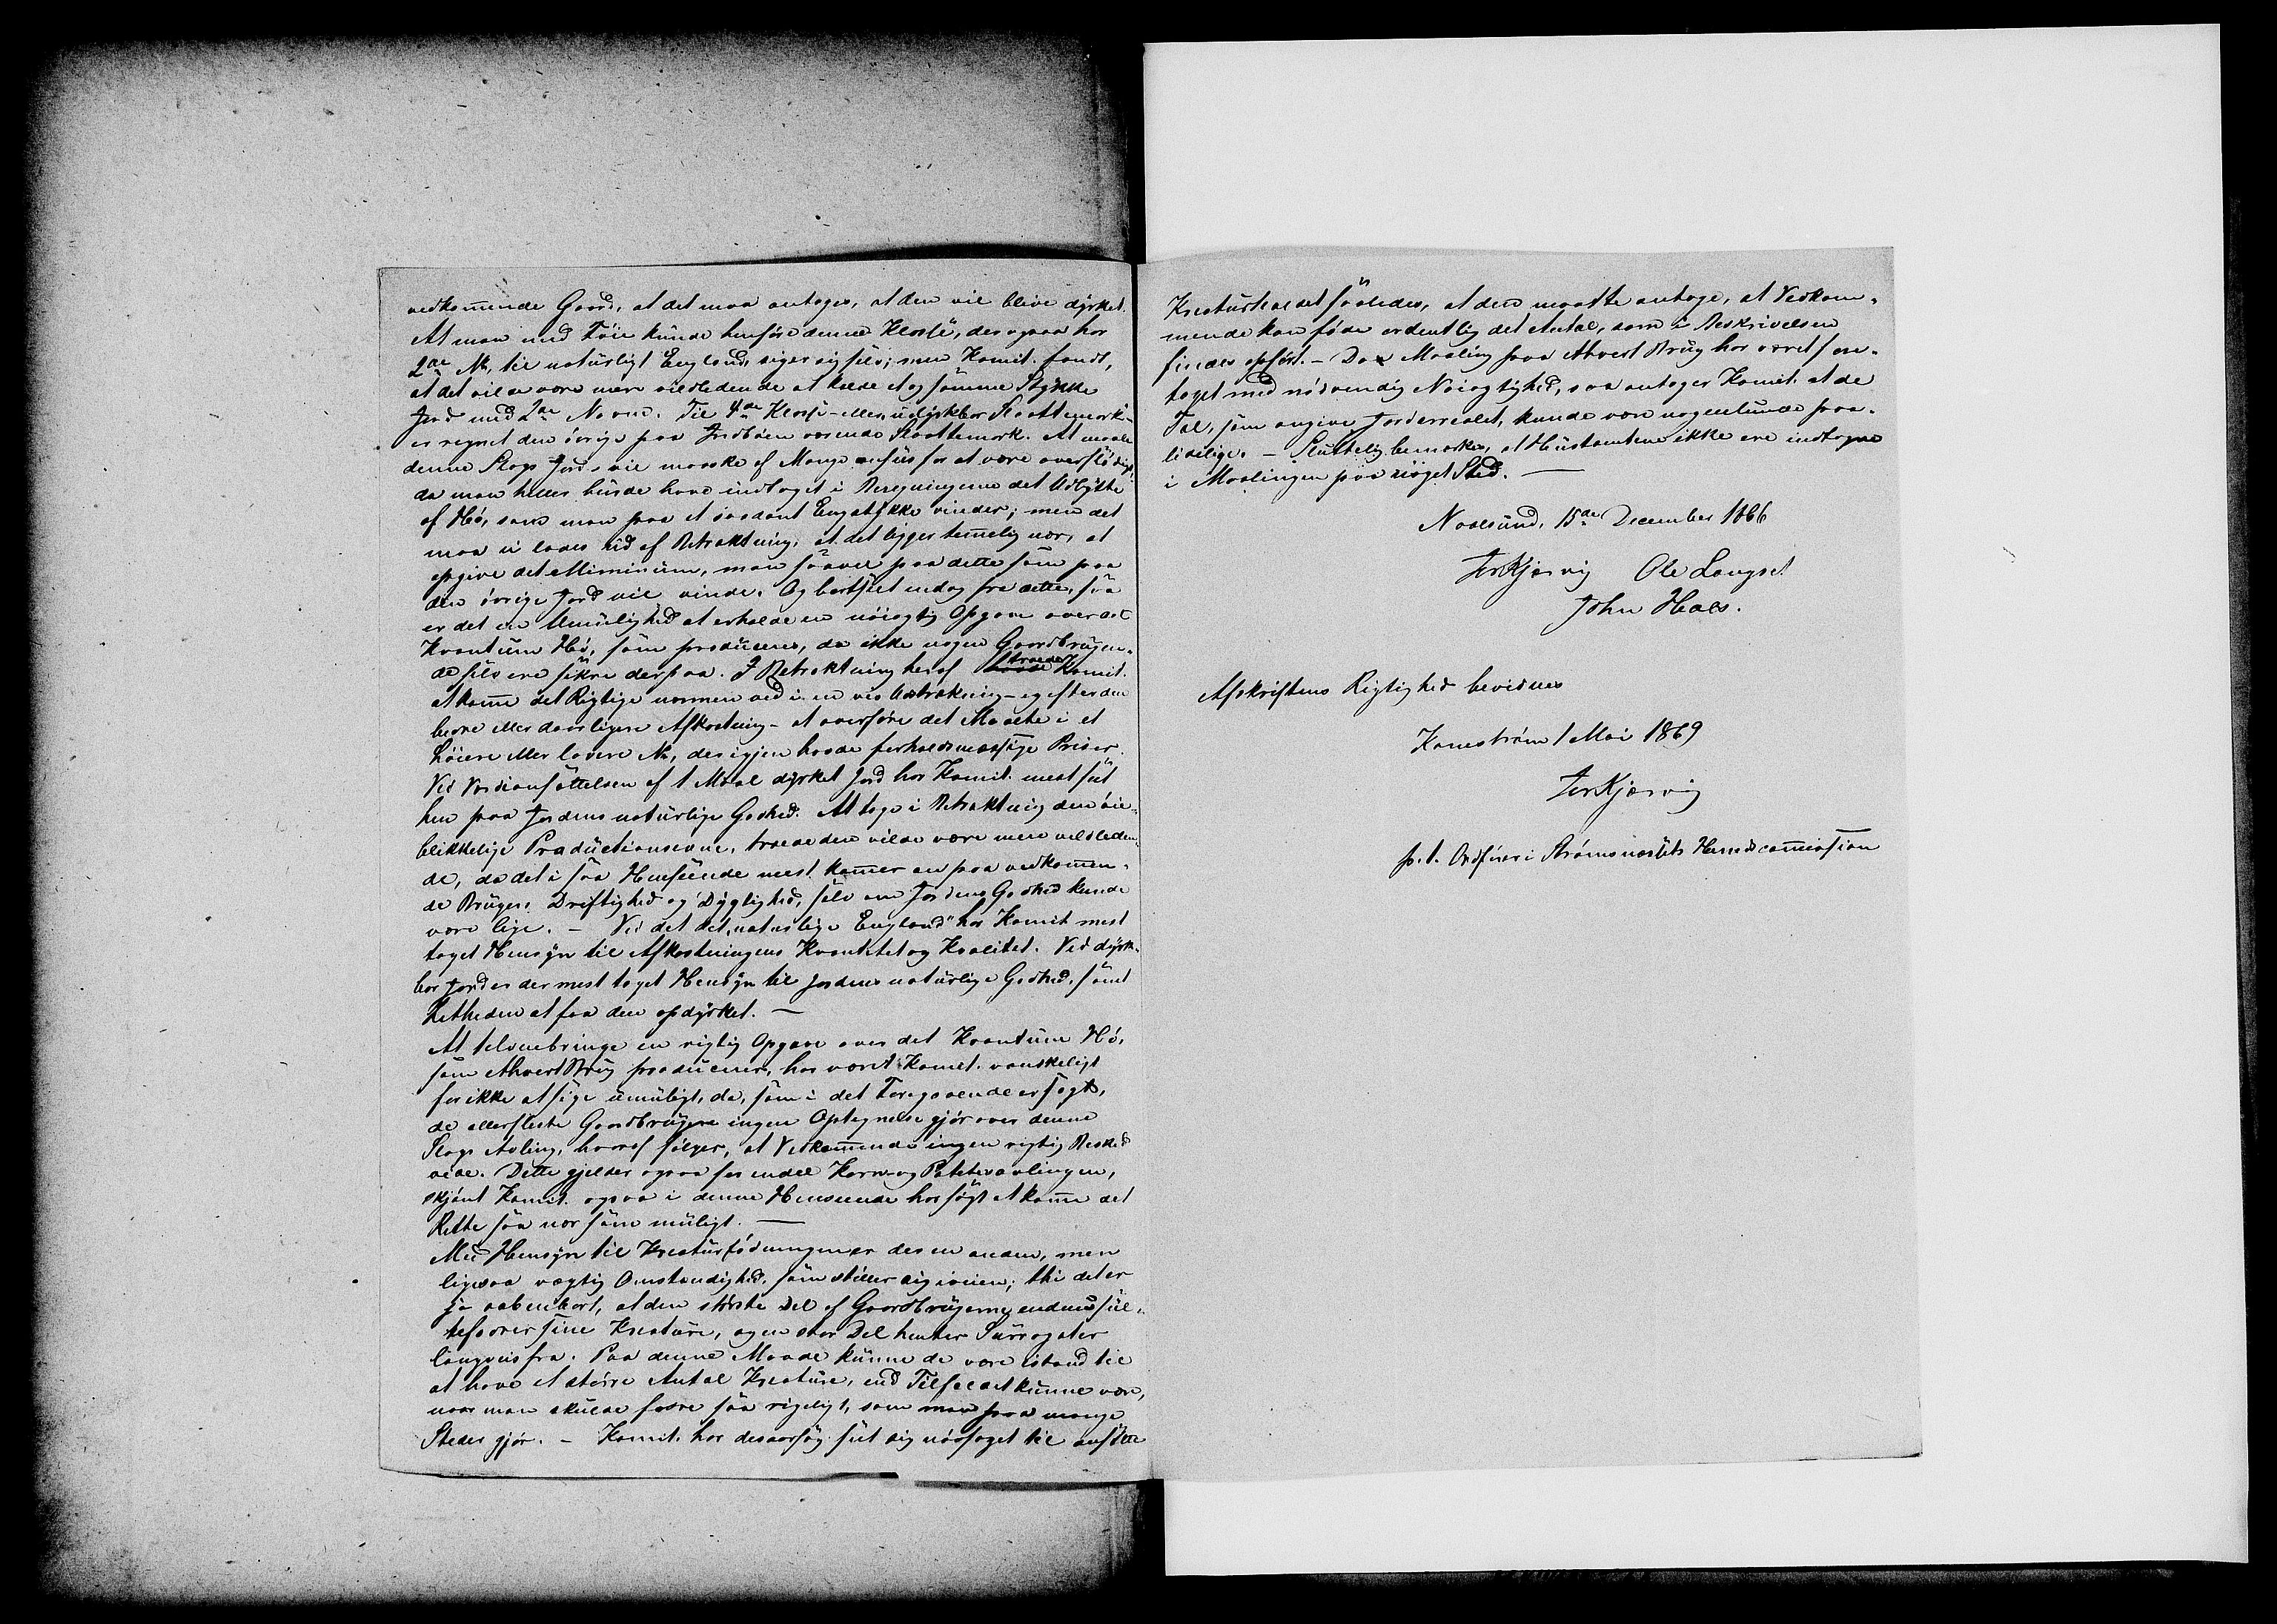 vedkommende Gaard, at det maa antages, at den vil blive dyrket.
At man med Föie kunde henföre denne Klasse, der ogsaa har
2de No, til naturligt England, siger sig selv; men Komit. fandt,
at det vilde være mere vildledende at kalde et og samme Stykke
Jord med 2de Navne. Til 4de Klasse - eller udyrkbar Slaattemark -
er regnet den övrige paa Indböen værende Slaattemark. At maale
denne Slags Jord, vil maaske af Mange ansees for at være overflödigt,
da man heller burde have indtaget i Beregningerne det Udbytte
af Hö, som man paa et saadant Engstykke vinder; men det
maa ei lades ud af Betraktning, at det ligger temmelig nær, at
opgive det Minimum, man saavel paa dette som paa
den övrige Jord vil vinde. Og bortseet endog fra dette, saa
er det en Umulighed at erholde en nöiagtig Opgave over det
Kvantum Hö, som produceres, da ikke nogen Gaardbrugen-
de selv ere sikre derpaa. I Betraktning heraf troede Komit.
at komme det Rigtige nærmere ved i en vis Udstrækning - og efter den
bedre eller daarligere Afkastning - at overföre det Maalte i et
höiere eller lavere No, der igjen havde forholdsmæssige Priser.
Ved Værdiansættelsen af 1 Maal dyrket Jord har Komit. mest seet
hen paa Jordens naturlige Godhed. At tage i Betraktning den öie-
blikkelige Productionsevne, troede den vilde være mere vildleden-
de, da det i saa Henseende mest kommer an paa vedkommen-
de Brugers Driftighed og Dygtighed, selv om Jordens Godhed kunde
være lige. - Ved det det "naturlige England" har Komit. mest
taget Hensyn til Afkastningens Kvantitet og Kvalitet. Ved dyrk-
bar Jord er der mest taget Hensyn til Jordens naturlige Godhed, samt
Letheden at faa den opdyrket. —
At tilveiebringe en rigtig Opgave over det Kvantum Hö,
som ethvert Brug producerer, har været Komit. vanskeligt
for ikke at sige umuligt, da, som i det Foregaaende er sagt,
de allerfleste Gaardbrugere ingen Optegnelse gjör over denne
Slags Avling, hvoraf fölger, at Vedkommende ingen rigtig Besked
vide. Dette gjelder ogsaa for endel Korn- og Potetesavlingen,
skjönt Komit. ogsaa i denne Henseende har sögt at komme det
Rette saa nær som muligt. —
Med Hensyn til Kreaturfödningen er der en anden, men
ligesaa vægtig Omstændighed, som stiller sig iveien; thi det er
jo aabenbart, at den störste Del af Gaardbrugerne endnu sul-
tefodrer sine Kreature, og en stor Del henter Surrogater
langveis fra. Paa denne Maade kunne de være istand til
at have et större Antal Kreature, end Tilfældet kunne være,
naar man skulde fodre saa rigeligt, som man paa mange
Steder gjör. - Komit. har desaarsag seet sig nödsaget til ansætte
Kreaturholdet saaledes, at den maatte antage, at Vedkom-
mende kan föde ordentlig det Antal, som i Beskrivelsen
findes opfört. - Da Maaling paa ethvert Brug har været fore-
taget med nödvendig Nöiagtighed, saa antager Komit. at de
Tal, som angive Jordarealet, kunde være nogenlunde paa-
lidelige. - Sluttelig bemærkes, at Hustomtene ikke ere indtagne
i Maalingen paa noget Sted. —
Naalsund, 15de December 1866
Ole Langset
John Hals.
Afskriftens Rigtighed bevidnes
Kanestrøm 1 Mai 1869
p. t. Ordförer i Strömsnæssets Herredscommission